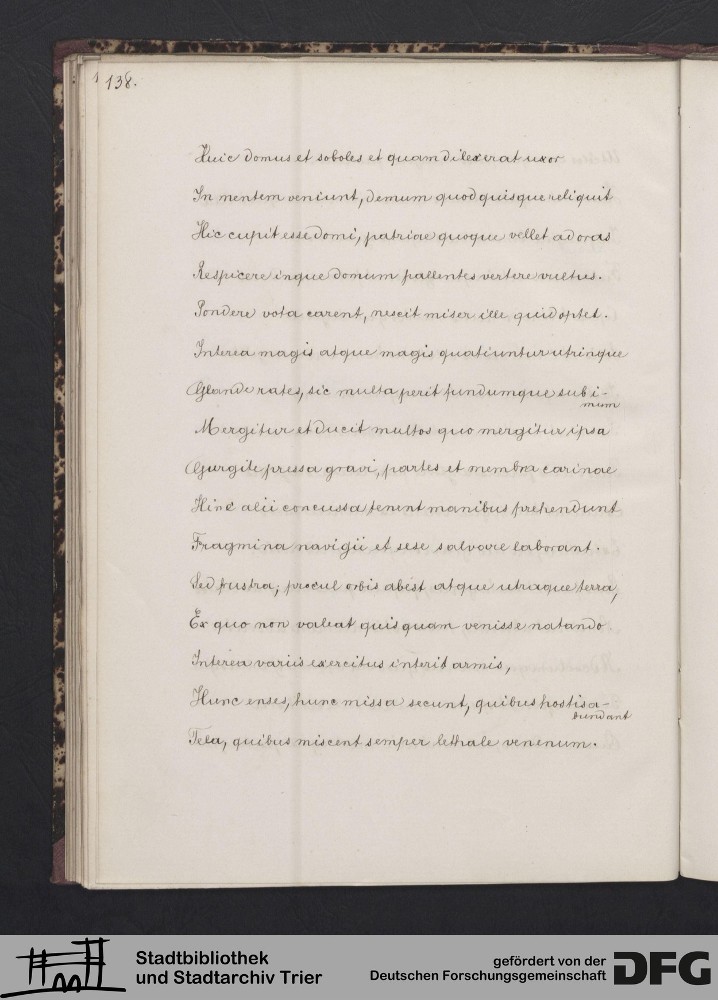 138.
Huic domus et soboles et quam dilexerat uxor
In mentem veniunt, demum quod quisque reliquit
Hic cupit esse domi, patriae quoque vellet ad oras
Respicere inque domum pallentes vertere vultus.
Pondere vota carent, nescit miser ille quid optet.
Interea magis atque magis quatiuntur utrinque
Glande rates, sic multa perit fundumque sub i-
mum
Mergitur et ducit multos quo mergitur ipsa
Gurgite pressa gravi, partes et membra carinae
Hinc alii concussa tenent manibus prehendunt
Fragmina navigii et sese salvare laborant.
Sed frustra, procul orbis abest atque utraque terra,
Ex quo non valeat quisquam venisse natando
Interea variis exercitus interit armis,
Hunc enses, hunc missa secunt, quibus hostis a-
bundant
Tela, quibus miscent semper lethale venenum.
Stadtbibliothek
und Stadtarchiv Trier
gefördert von der
Deutschen Forschungsgemeinschaft
DFG